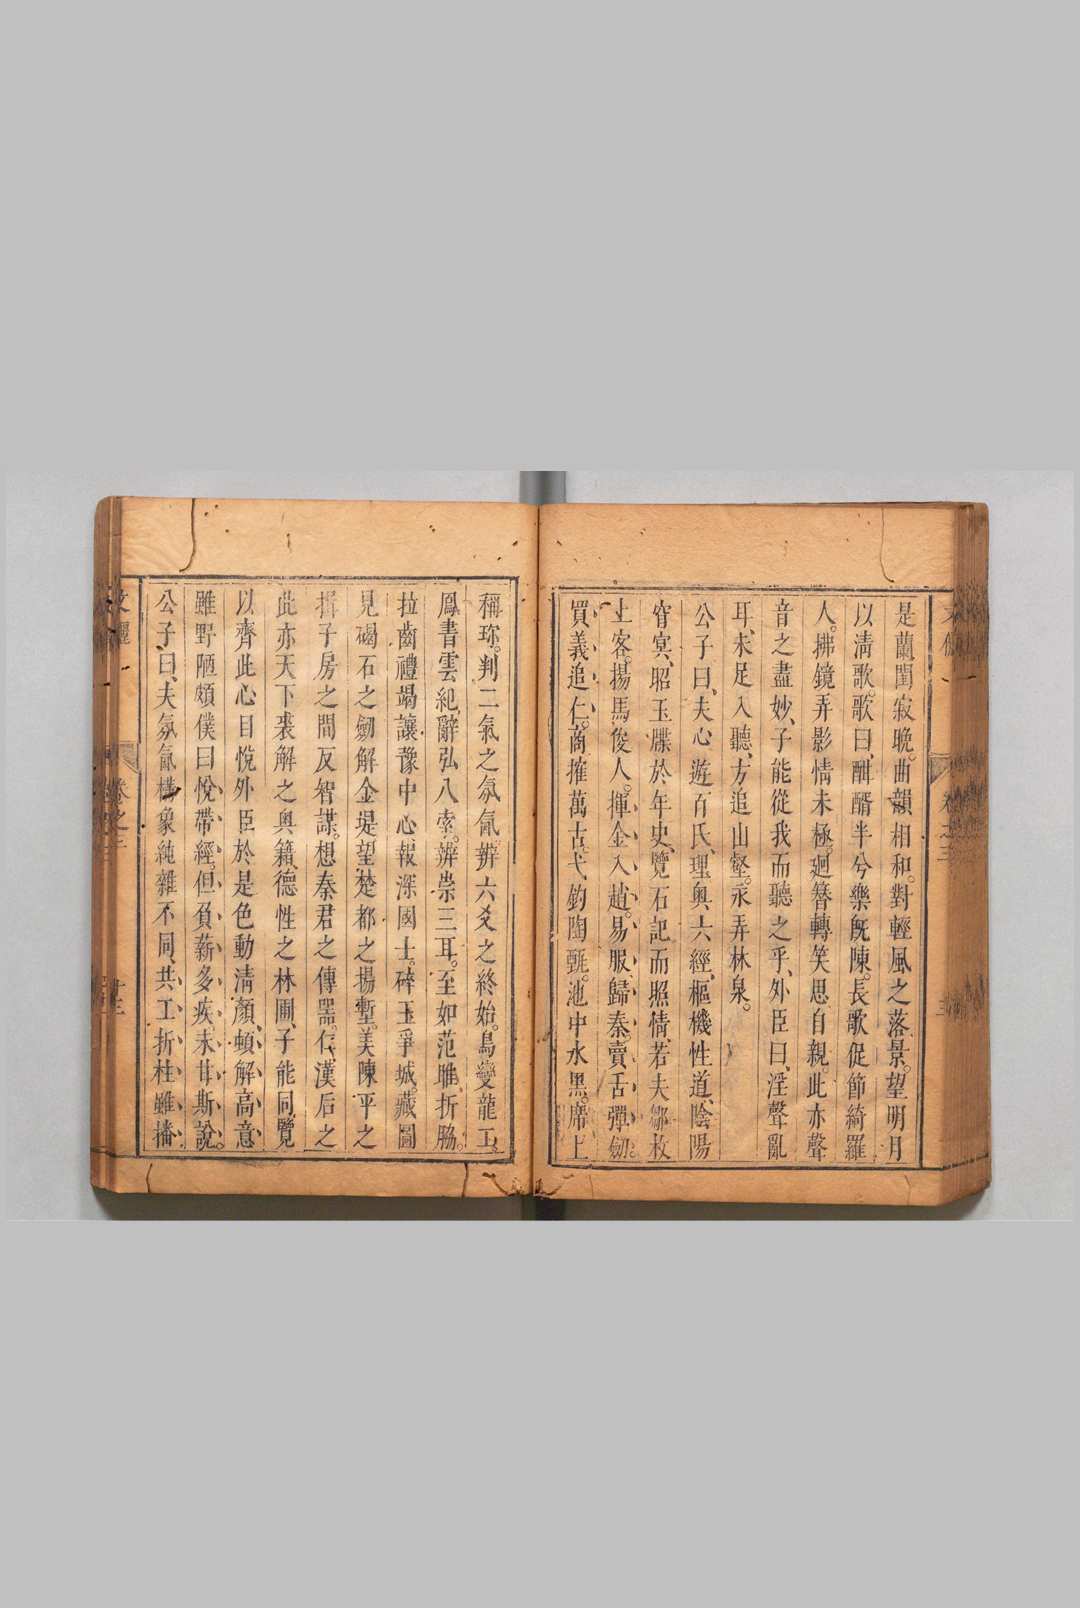 是蘭閨寂晚。曲韻相和。對輕風之落景。望明月
以清歌。歌曰、酣醑半兮樂旣陳。長歌促節綺羅
人。拂鏡弄影情未極。廻簪轉笑思自親。此亦聲
音之盡妙、子能從我而聽之乎、外臣曰、淫聲亂
耳、未足入聽、方追山壑。永弄林泉。
公子曰、夫心遊百氏、理奥六經、樞機性道、陰陽
窅冥、昭玉牒於年史、覽石記而照倩、若夫鄒枚
上客。揚馬俊人。揮金入趙。易服歸秦。賣舌彈劒。
買義追仁。商搉萬古。弋釣陶甄。池中水黑。席上
稱珎。判二氣之氛氤、辨六爻之終始。鳥變龍工。
鳳書雲紀、辭弘八索。辨祟三耳。至如范雎、折脇。
拉齒禮竭讓豫中心報深國士。碎玉爭城。藏圖
見碣石之劒解金堤望楚都之揚塹。美陳平之
揖子房之間反智謀。想秦君之傳噐。仁漢后之
此亦天下裘解之奥籍、德性之林圃、子能同覽
以齊此心目悅外臣於是色動清顏、頓解高意
雖野陋頗僕曰悅帶經。但負薪多疾、未甘斯說。
公子曰、夫氛氤構象純雜不同、共工折柱雖播
文儷
卷之三